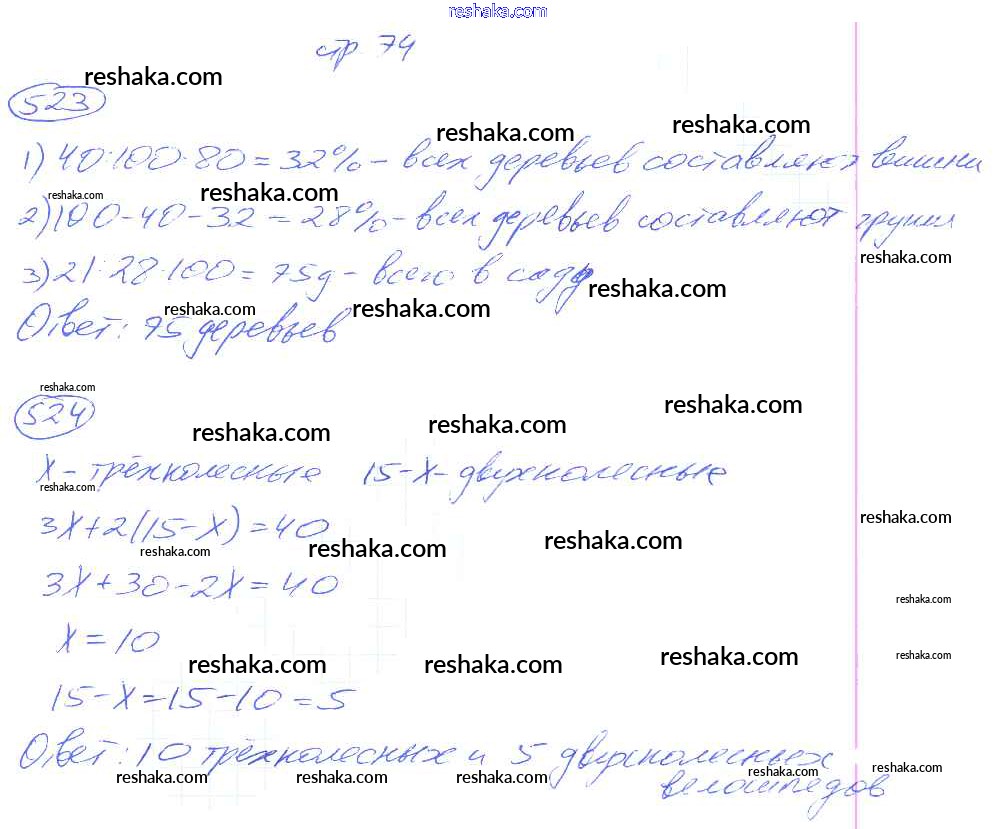 reshaka.com
стр. 74
reshaka.com
523
reshaka.com reshaka.com
1) 40:100·80=32% - всех деревьев составляют вишни
reshaka.com reshaka.com
2) 100-40-32=28% - всех деревьев составляют груши
reshaka.com
3) 21:28·100=75д - всего в саду
reshaka.com
reshaka.com reshaka.com
Ответ: 75 деревьев
reshaka.com
524
reshaka.com reshaka.com reshaka.com
x - трёхколесные 15-x - двухколесные
reshaka.com
reshaka.com
3x+2(15-x)=40
reshaka.com reshaka.com reshaka.com
3x+30-2x=40
reshaka.com
x=10
reshaka.com reshaka.com reshaka.com reshaka.com
15-x=15-10=5
Ответ: 10 трёхколесных и 5 двухколесных
reshaka.com reshaka.com reshaka.com reshaka.com reshaka.com
велосипедов